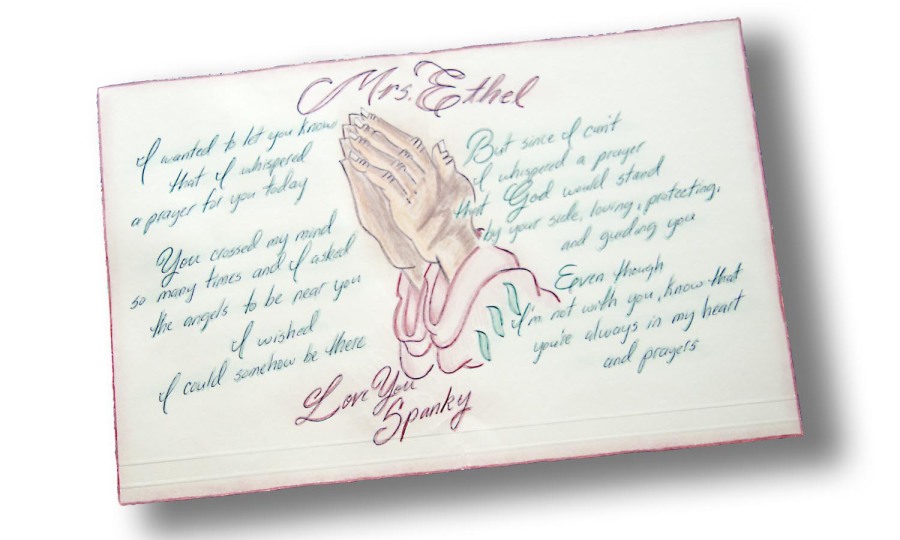 Mrs. Ethel
I wanted to let you know
that I whispered
a prayer for you today
You crossed my mind
so many times and I asked
the angels to be near you
I wished
I could somehow be there
But since I can't
I whispered a prayer
that God would stand
by your side, loving, protecting,
and guiding you
Even though
I'm not with you, know that
you're always in my heart
and prayers
Love You
Spanky